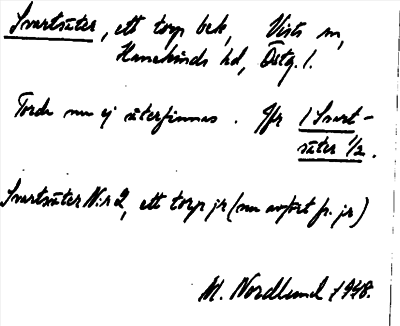 Svartsäter, ett torp bek, Vists sn,
Hanekinds hd, Östg. l.
Torde nu ej återfinnas. Jfr 1 Svart-
säter 1/2.
Svartsäter N:r 2, ett torp jr (nu avfört fr. jr)
M. Nordlund 1948.